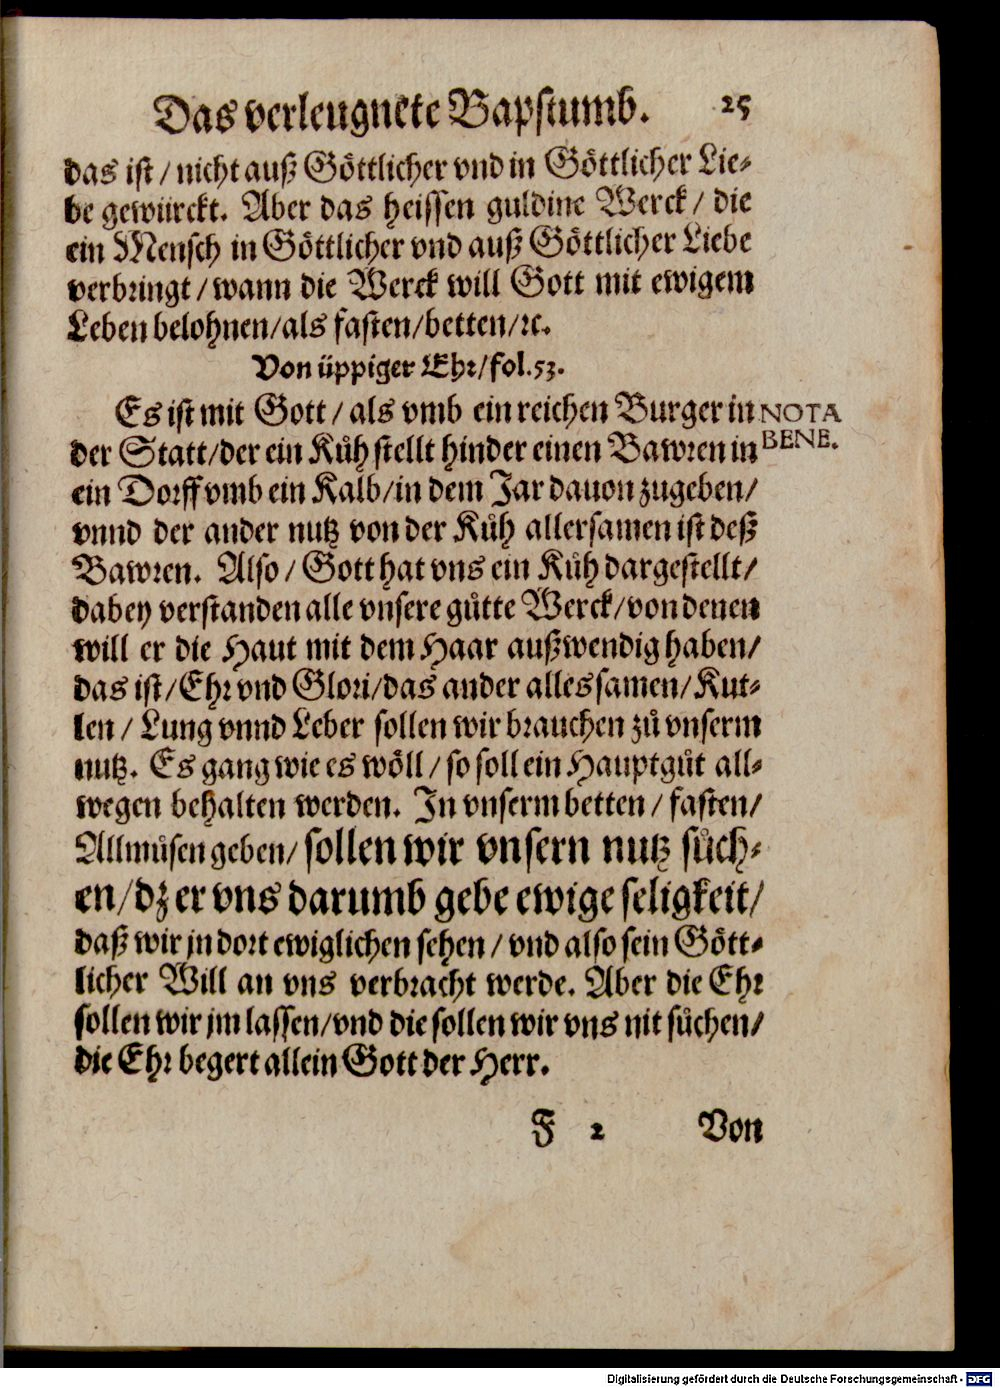 Das verleugnete Bapstumb. 25
das ist / nicht auß Göttlicher vnd in Göttlicher Lie-
be gewürckt. Aber das heissen guldine Werck / die
ein Mensch in Göttlicher vnd auß Göttlicher Liebe
verbringt / wann die Werck will Gott mit ewigem
Leben belohnen / als fasten / betten / ꝛc.
Von üppiger Ehr / fol. 53.
Es ist mit Gott / als vmb ein reichen Burger in NOTA
der Statt / der ein Kůh stellt hinder einen Bawren in BENE.
ein Dorff vmb ein Kalb / in dem Jar dauon zugeben /
vnnd der ander nutz von der Kůh allersamen ist deß
Bawren. Also / Gott hat vns ein Kůh dargestellt /
dabey verstanden alle vnsere gůtte Werck / von denen
will er die Haut mit dem Haar außwendig haben /
das ist / Ehr vnd Glori / das ander alles samen / Kut-
len / Lung vnnd Leber sollen wir brauchen zů vnserm
nutz. Es gang wie es wöll / so soll ein Hauptgůt all-
wegen behalten werden. In vnserm betten / fasten /
Allmůsen geben / sollen wir vnsern nutz sůch-
en / dz er vns darumb gebe ewige seligkeit /
daß wir jn dort ewiglichen sehen / vnd also sein Gött-
licher Will an vns verbracht werde. Aber die Ehr
sollen wir jm lassen / vnd die sollen wir vns nit sůchen /
die Ehr begert allein Gott der Herr.
F 2 Von
Digitalisierung gefördert durch die Deutsche Forschungsgemeinschaft - DFG